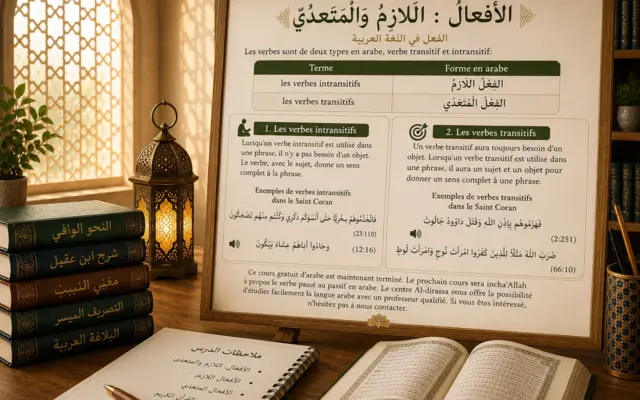 الأفعالُ : اللَّازِمُ وَالْمُتَعدِيّ
الفعل في اللغة العربية
Les verbes sont de deux types en arabe, verbe transitif et intransitif:
Terme
Forme en arabe
les verbes intransitifs
الفِعْلُ اللَّازِمُ
les verbes transitifs
الفِعْلُ الْمُتَعَدِّي
1. Les verbes intransitifs
Lorsqu'un verbe intransitif est utilisé dans
une phrase, il n'y a pas besoin d'un objet.
Le verbe, avec le sujet, donne un sens
complet à la phrase.
Exemples de verbes intransitifs
dans le Saint Coran
حَتَّى وَكُنْتُم مِنْهُم تَضْحَكُونَ
(23:110)
وَجَاءُوا أَبَاهُمْ عِشَاءً يَبْكُونَ
(12:16)
2. Les verbes transitifs
Un verbe transitif aura toujours besoin d'un
objet. Lorsqu'un verbe transitif est utilisé dans
une phrase, il aura un sujet et un objet pour
donner un sens complet à la phrase.
Exemples de verbes transitifs
dans le Saint Coran
فَهَزَمُوهُم بِإِذْنِ اللَّهِ وَقَتَلَ دَاوُودُ جَالُوتَ
(2:251)
ضَرَبَ اللَّهُ مَثَلًا لِلَّذِينَ كَفَرُوا امْرَأَتَ نُوحٍ وَامْرَأَتَ لُوطٍ
(66:10)
Ce cours gratuit d'arabe est maintenant terminé. Le prochain cours sera incha'Allah
à propos le verbe passé au passif en arabe. Le centre Al-dirassa vous offre la possibilité
d'étudier facilement la langue arabe avec un professeur qualifié. Si vous êtes intéressé,
n'hésitez pas à nous contacter.
النحو الوافي
شرح ابن عقيل
مغني
التصريف الميسر
البلاغة العربية
ملاحظات الدرس
الأفعال: اللازم والمتعدي
الأفعال اللازم
الأفعال المتعدي
القرآن الكريم